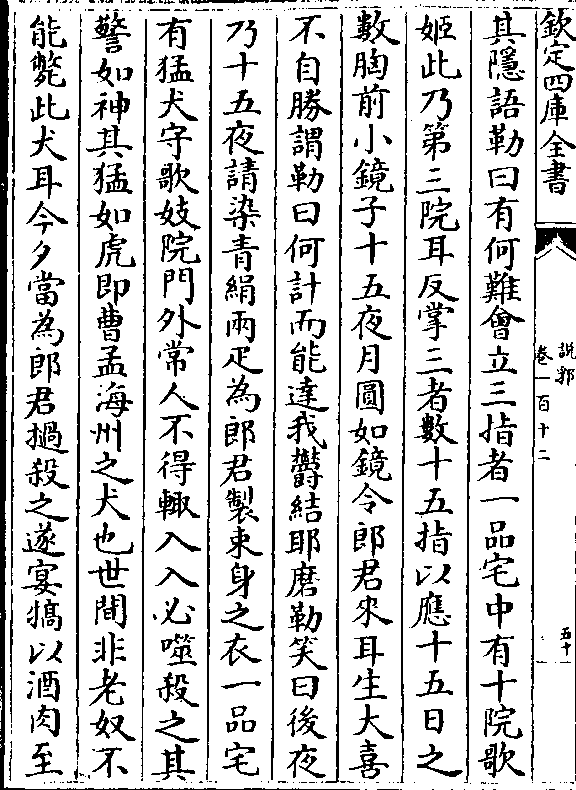 欽定四庫全書
說郛
卷一百十二
五十
其隱語勒曰有何難會立三指者一品宅中有十院歌
姬此乃第三院耳反掌三者數十五指以應十五日之
數胸前小鏡子十五夜月圓如鏡令郎君來耳生大喜
不自勝謂勒曰何計而能達我鬱結耶磨勒笑曰後夜
乃十五夜請染青絹兩疋為郎君製束身之衣一品宅
有猛犬守歌妓院門外常人不得輙入入必噬殺之其
警如神其猛如虎即曹孟海州之犬也世間非老奴不
能斃此犬耳今夕當為郎君撾殺之遂宴犒以酒肉至